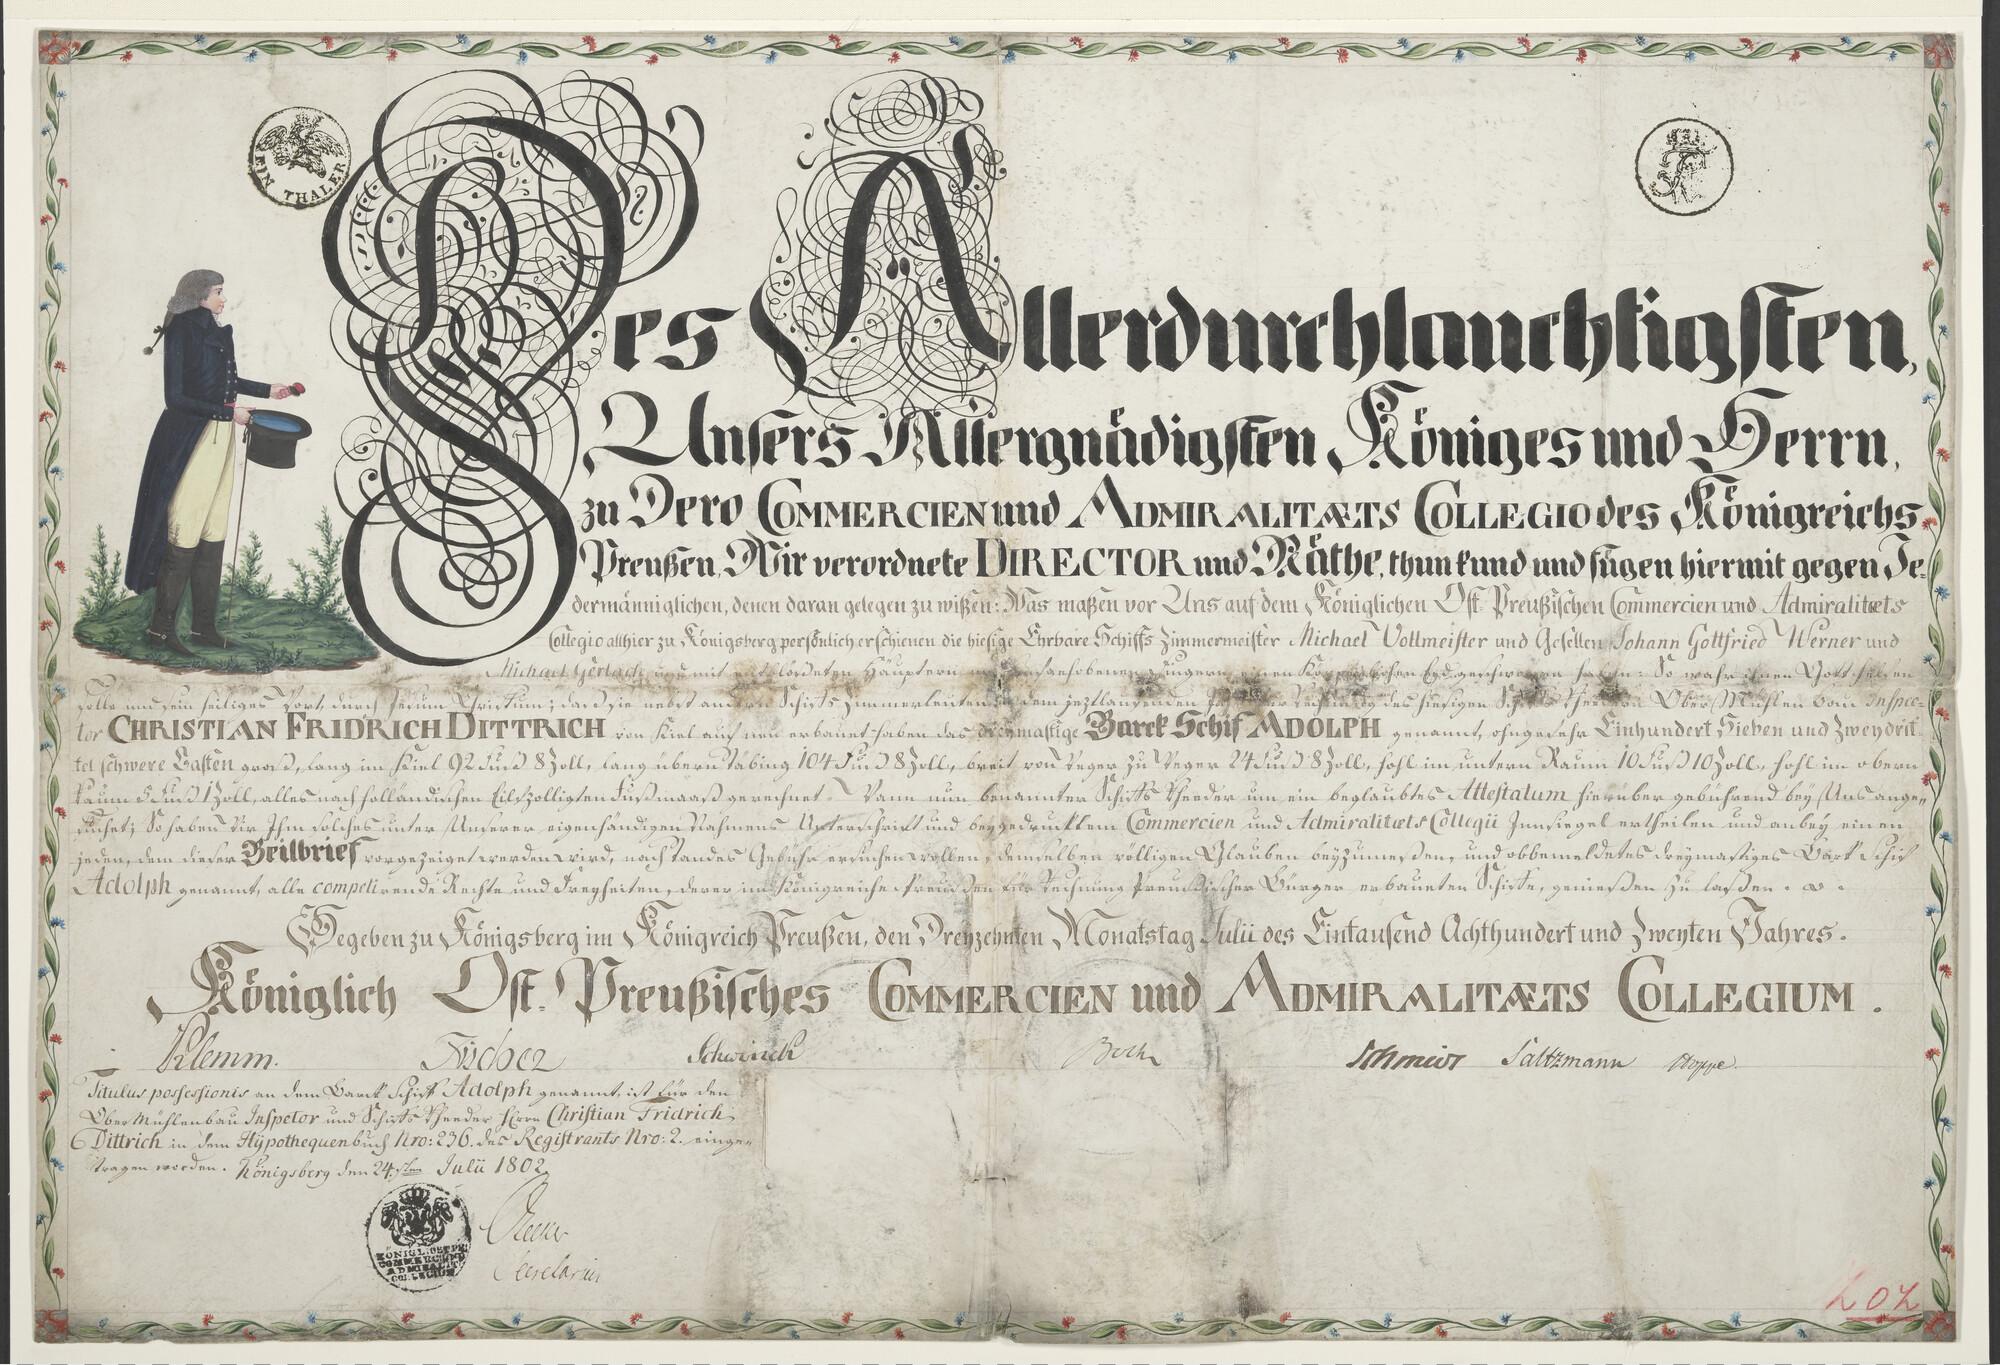 EIN THALER
FR
Des Allerdurchlauchtigsten,
Unsers Allergnädigsten Königes und Herrn,
zu Dero COMMERCIEN und ADMIRALITÆTS COLLEGIO des Königreichs
Preußen, Wir verordnete DIRECTOR und Räthe, thun kund und fügen hiermit gegen Je-
dermänniglichen, denen daran gelegen zu wißen: Was maßen vor Uns auf dem Königlichen Ost-Preußischen Commercien und Admiralitæts
Collegio allhier zu Königsberg persönlich erschienen die hiesige Ehrbare Schiffs Zimmermeister Michael Vollmeister und Gesellen Johann Gottfried Werner und
Michael Gerlach und mit entblößeten Häuptern und aufgehobenen Fingern einen Körperlichen Eyd geschworen haben: So wahr ihnen Gott helfen
solle und sein heiliges Wort, durch Jesum Christum; daß sie nebst andern Schiffs Zimmerleuten in dem jeztlaufenden Jahr für Rechnung des hiesigen Schiffs Rheeder Ober Mühlen Bau Inspec-
tor CHRISTIAN FRIDRICH DITTRICH von Kiel auf neu erbauet haben das dreymastige Barck Schif ADOLPH genannt, ohngefehr Einhundert Sieben und Zweydrit-
tel schwere Lasten groß, lang im Kiel 92 Fuß 8 Zoll, lang übern Täbing 104 Fuß 8 Zoll, breit von Weger zu Weger 24 Fuß 8 Zoll, hohl im untern Raum 10 Fuß 10 Zoll, hohl im obern
Raum 5 Fuß 1 Zoll, alles nach holländischen Eilfzolligten Fußmaaß gerechnet. Wann nun benannter Schiffs Rheeder um ein beglaubtes Attestatum hierüber gebührend bey Uns ange-
suchet; So haben Wir Ihm solches unter Unserer eigenhändigen Nahmens Unterschrift und beygedrucktem Commercien und Admiralitæts Collegii Innsiegel ertheilen und anbey einen
jeden, dem dieser Beilbrief vorgezeiget werden wird, nach Standes Gebühr ersuchen wollen, demselben völligen Glauben beyzumeßen, und obbemeldetes dreymastiges Barck Schif
Adolph genannt, alle competirende Rechte und Freyheiten, derer im Königreiche Preußen für Rechnung Preußischer Bürger erbaueten Schiffe, genießen zu laßen.
Gegeben zu Königsberg im Königreich Preußen, den Dreyzehnten Monatstag Julii des Eintausend Achthundert und Zweyten Jahres.
Königlich Ost-Preußisches COMMERCIEN und ADMIRALITÆTS COLLEGIUM.
Klemm. Fischer Schwinck Schmidt Saltzmann Hoppe
Titulus possessionis an dem Barck Schiff Adolph genannt, ist für den
Ober Mühlenbau Inspetor und Schiffs Rheeder Herrn Christian Fridrich
Dittrich in dem Hypothequenbuch Nro: 236. des Registrants Nro: 2. einge-
tragen worden. Königsberg den 24sten Julii 1802
KÖNIGL: OSTPR:
COMMERC: UND
ADMIRALIT:
COLLEGIUM
Secretarius
202